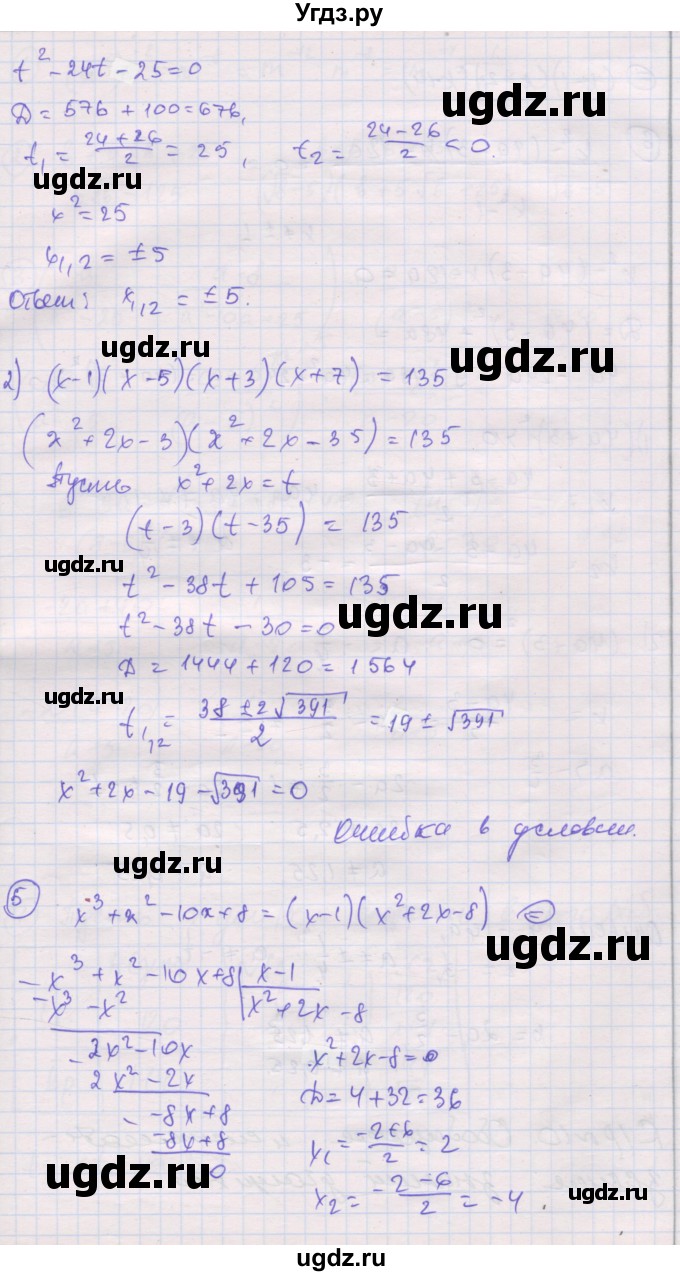 Угдз.ру
t² - 24t - 25 = 0
ugdz.ru
D = 576 + 100 = 676,
t₁ = (24 + 26)/2 = 25, t₂ = (24 - 26)/2 < 0.
ugdz.ru
x² = 25
x₁,₂ = ±5
Ответ: x₁,₂ = ±5.
ugdz.ru
2) (x-1)(x-5)(x+3)(x+7) = 135
(x² + 2x - 3)(x² + 2x - 35) = 135
Пусть x² + 2x = t
(t - 3)(t - 35) = 135
ugdz.ru
t² - 38t + 105 = 135
ugdz.ru
t² - 38t - 30 = 0
D = 1444 + 120 = 1564
ugdz.ru
t₁,₂ = (38 ± 2√391)/2 = 19 ± √391
x² + 2x - 19 - √391 = 0
Ошибка в условии.
ugdz.ru
5 x³ + x² - 10x + 8 = (x-1)(x² + 2x - 8) =
ugdz.ru
- x³ + x² - 10x + 8 | x - 1
- x³ - x² | x² + 2x - 8
- 2x² - 10x
2x² - 2x
x² + 2x - 8 = 0
D = 4 + 32 = 36
- -8x + 8
-8x + 8
x₁ = (-2+6)/2 = 2
ugdz.ru
0
x₂ = (-2-6)/2 = -4.
ugdz.ru
ugdz.ru